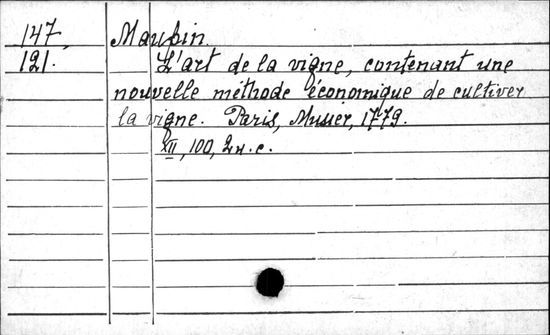 147 Maupin.
121. L'art de la vigne, contenant une
nouvelle méthode économique de cultiver
la vigne. Paris, Musier, 1779.
XII, 100, 2 n. c.